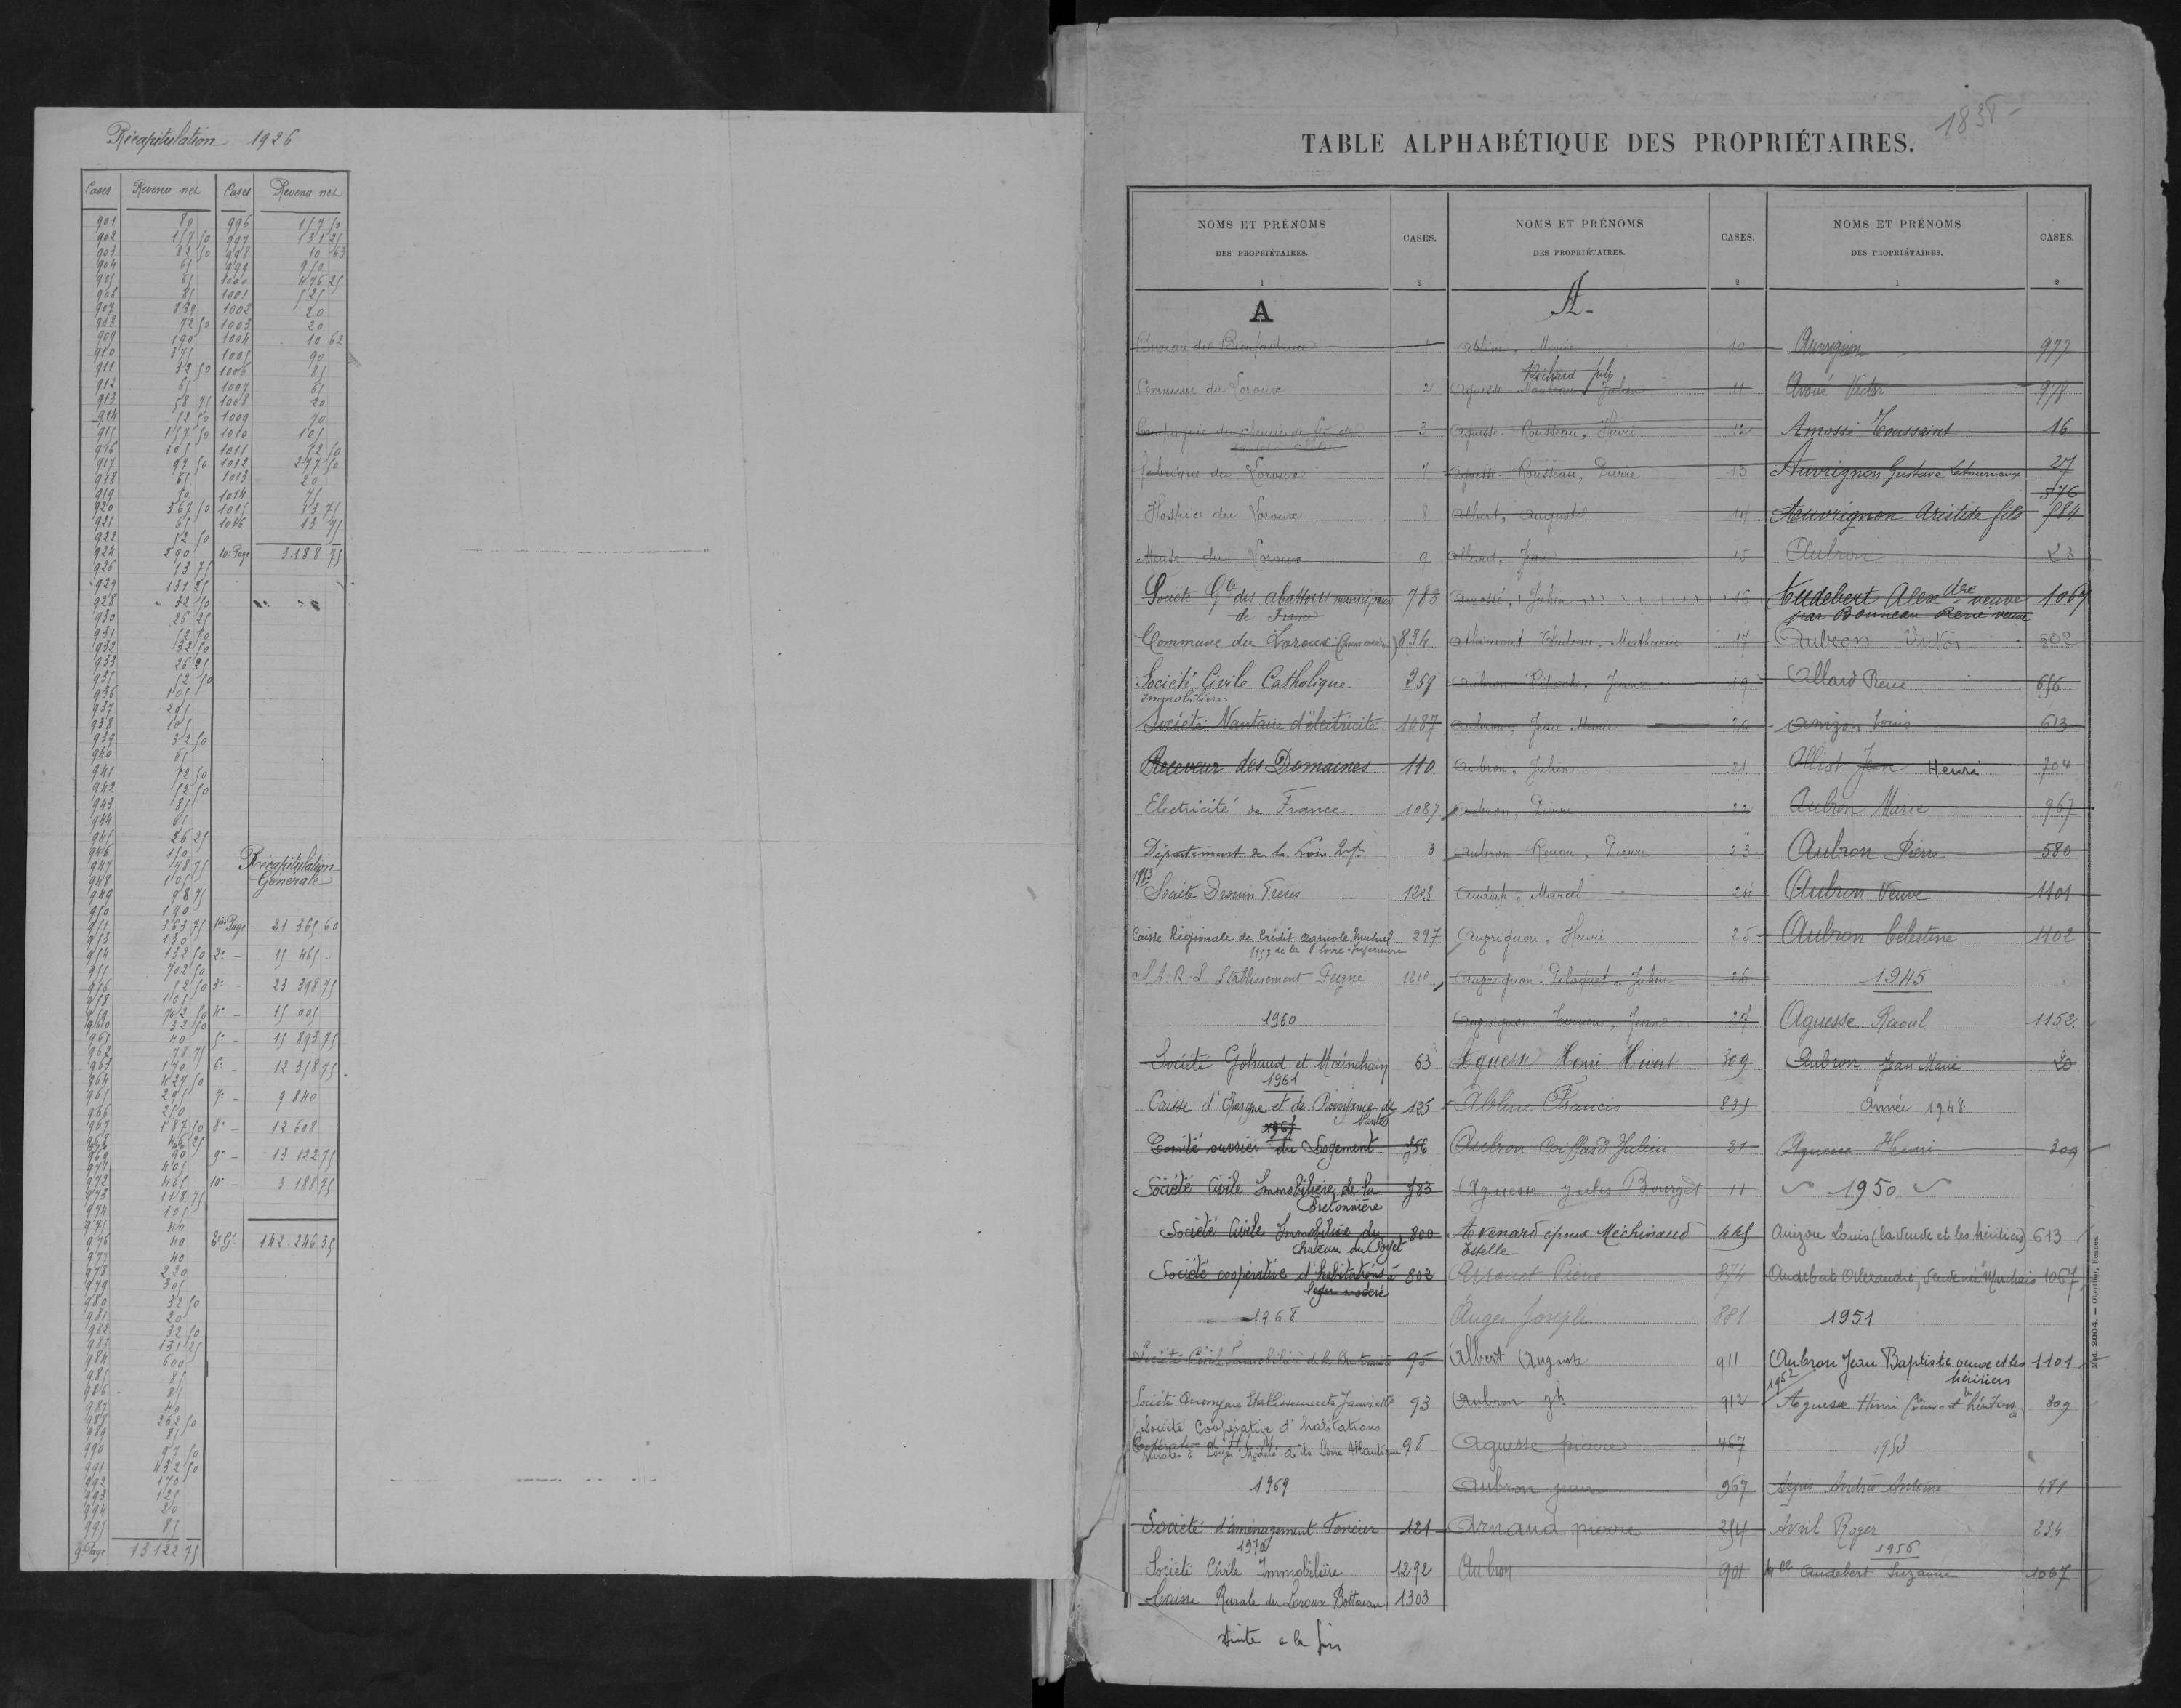 Récapitulation 1926
Cases Revenu net Cases Revenu net
901 80 996 157 50
902 157 50 997 131 25
903 82 50 998 10 63
904 65 999 950
905 65 1000 476 25
906 85 1001 525
907 839 1002 20
908 72 50 1003 20
909 190 1004 10 62
910 375 1005 90
911 32 50 1006 85
912 65 1007 65
913 58 75 1008 20
914 52 50 1009 70
915 157 50 1010 105
916 105 1011 52 50
917 97 50 1012 297 50
918 65 1013 20
919 50 1014 75
920 367 50 1015 13 75
921 65 1016 13 75
922 52 50
924 290 10e Page 3.188 75
926 13 75
927 131 25
928 32 50
930 26 25
931 52 50
932 32 50
933 26 25
935 52 50
936 105
937 295
938 105
939 32 50
940 65
941 52 50
942 52 50
943 85
944 65
945 26 25
946 150
947 78 75
948 105
949 98 75
950 190
951 363 75
953 130
954 132 50
955 702 50
956 52 50
958 105
959 702 50
960 32 50
961 40
962 78 75
963 170
964 427 50
965 295
966 250
967 187 50
968 46 25
969 90
971 405
972 465
973 118 75
974 105
975 40
976 40
977 40
978 220
979 305
980 32 50
981 20
982 32 50
983 131 25
984 600
985 85
986 85
987 40
988 262 50
989 85
990 97 50
991 432 50
992 170
993 125
994 20
995 85
9e Page 13122 75
Récapitulation
Générale
1ère Page 21 365 60
2e - 15 465 -
3e - 23 398 75
4e - 15 005
5e - 15 893 75
6e - 12 358 75
7e - 9 840
8e - 12 608
9e - 13 122 75
10e - 3 188 75
142.246 35
TABLE ALPHABÉTIQUE DES PROPRIÉTAIRES.
1838
NOMS ET PRÉNOMS
DES PROPRIÉTAIRES.
CASES.
1 2
A
Bureau de Bienfaisance 1
Commune du Loroux 2
Compagnie du chemin de fer de 3
Fabrique du Loroux 7
Hospice du Loroux 8
Mense du Loroux 9
Société Gle des abattoirs municipaux 783
de France
Commune du Loroux 834
Société Civile Catholique 259
Immobilière
Société Nantaise d'électricité 1087
Receveur des Domaines 110
Electricité de France 1087
Département de la Loire Infre 3
Société Drouin Frères 1203
Caisse Régionale de Crédit agricole Mutuel 297
de la Loire-Inférieure
S.A.R.L. Etablissement Feigné 1210
1960
Société Gohaud et 63
1961
Caisse d'Epargne et de Prévoyance de 125
Nantes
Comité ouvrier du Logement 756
Société Civile Immobilière de la 783
Bretonnière
Société Civile Immobilière du 800
Chateau du
Société coopérative d'habitations à 802
loyer modéré
1968
Société Civile Immobilière de la 95
Société Anonyme Etablissements 93
Société Coopérative d'habitations
à Loyer Modéré de la Loire Atlantique 98
1969
Société d'aménagement Foncier 121
1970
Société Civile Immobilière 1292
Caisse Rurale du Loroux Bottereau 1303
suite à la fin
NOMS ET PRÉNOMS
DES PROPRIÉTAIRES.
CASES.
1 2
A
Abline, Marie 10
Richard fils
Aguesse Julien 11
Aguesse Rousseau, Henri 12
Aguesse Rousseau, Pierre 13
Albert, Auguste 14
Allard, Jean 15
Amossé, Julien 16
Athimont Mathurin 17
Aubron Ripoche, Jean 19
Aubron, Jean Marie 20
Aubron, Julien 21
Aubron, Pierre 22
Aubron Renou, Pierre 23
Audap, Marcel 24
Auvrignon, Henri 25
Auvrignon Pilaquet, Julien 26
Auvrignon 27
Aguesse Henri Hivert 309
Abline Francis 835
Aubron Coiffard Julien 21
Aguesse Jules Bourget 11
Avenard époux Méchinaud 465
Estelle
Arrouet Pierre 874
Auger Joseph 881
Albert Auguste 911
Aubron Jh 912
Aguesse pierre 467
Aubron jean 967
Arnaud pierre 254
Aubron 901
NOMS ET PRÉNOMS
DES PROPRIÉTAIRES.
CASES.
1 2
Auvrignon 977
Avoué Victor 978
Amossé Toussaint 16
Auvrignon Gustave Letourneux 27
576
Auvrignon Aristide fils 584
Aubron 23
Audebert Alexdre veuve 1067
par Bonneau René veuve
Aubron Victor 902
Allard René 656
Anizon Louis 613
Alliot Jean Henri 704
Aubron Marie 967
Aubron Pierre 580
Aubron Veuve 1101
Aubron Célestine 1102
1945
Aguesse Raoul 1152
Aubron Jean Marie 20
Année 1948
Aguesse Henri 309
1950
Anizon Louis (la veuve et les héritiers) 613
Audebert Alexandre, veuve née Marchais 1067
1951
Aubron Jean Baptiste veuve et les 1101
héritiers
1952
Aguesse Henri (veuve et héritiers) 309
1953
André Antoine 481
Avril Roger 234
1956
Melle Audebert Suzanne 1067
Mod. 2004. — Oberthur, Rennes.